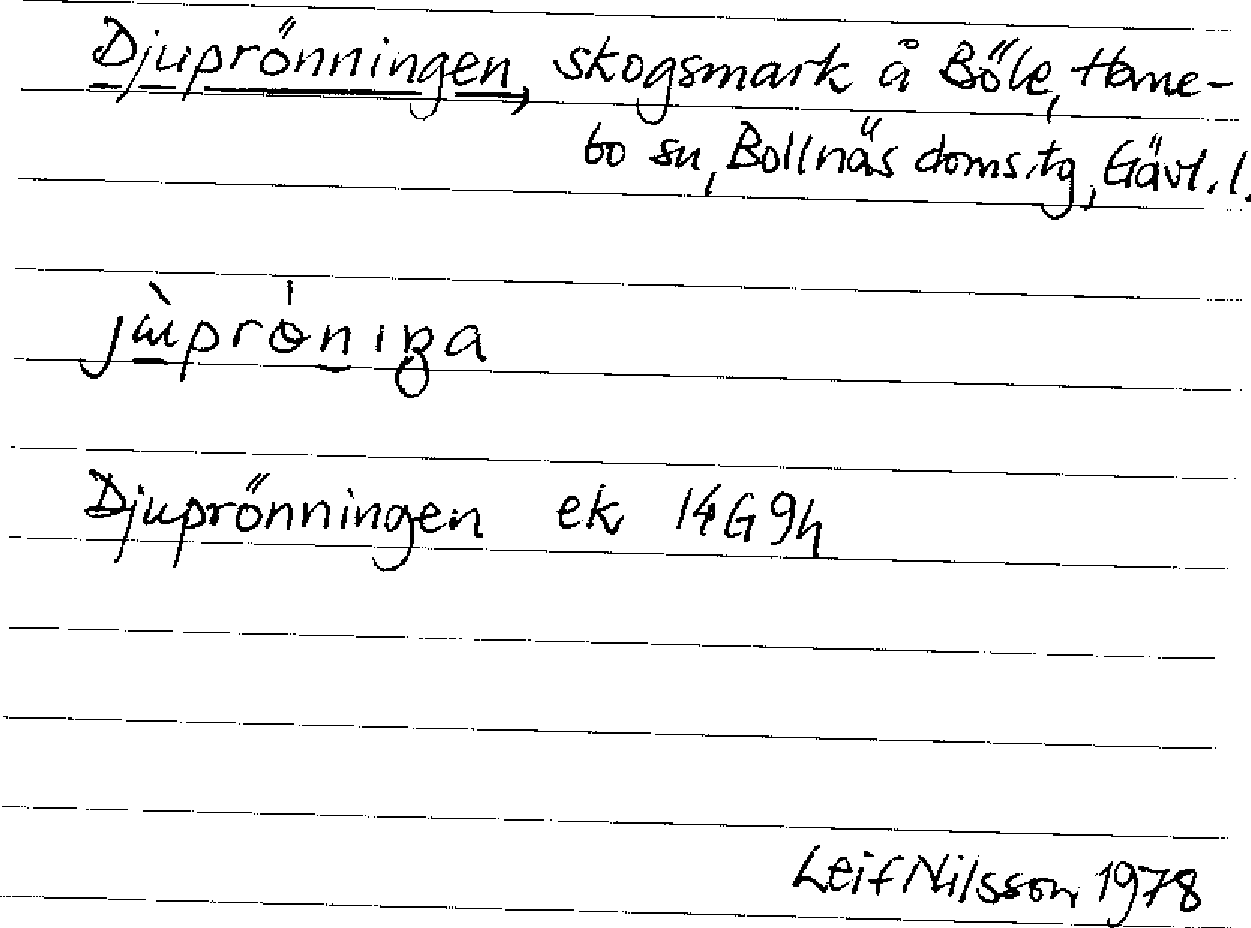 Djuprönningen, skogsmark å Böle, Hane-
bo sn, Bollnäs doms.tg, Gävl. l.
Djuprönningen ek 14G 9h
Leif Nilsson 1978